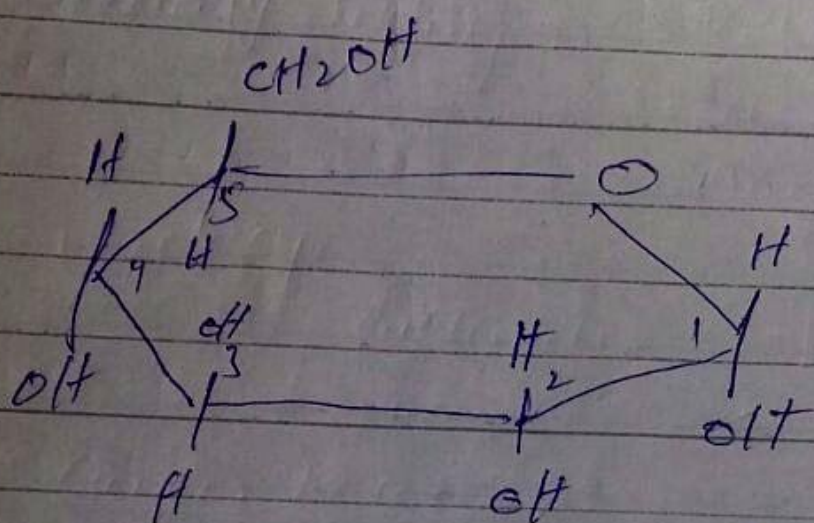 CH2OH
H
5 O
4 H H
OH 3 H 2 1
OH OH
H OH